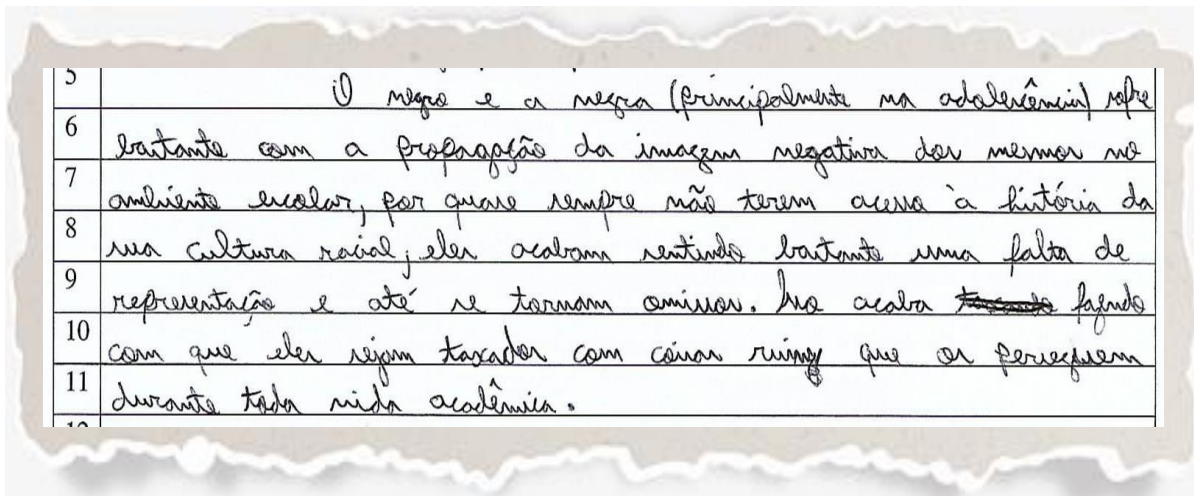 5 O negro e a negra (principalmente na adolescência) sofre
6 bastante com a propagação da imagem negativa dos mesmos no
7 ambiente escolar, por quase sempre não terem acesso à história da
8 sua cultura racial; eles acabam sentindo bastante uma falta de
9 representação e até se tornam omissos. Isso acaba fazendo
10 com que eles sejam taxados com coisas ruins que os perseguem
11 durante toda vida acadêmica.